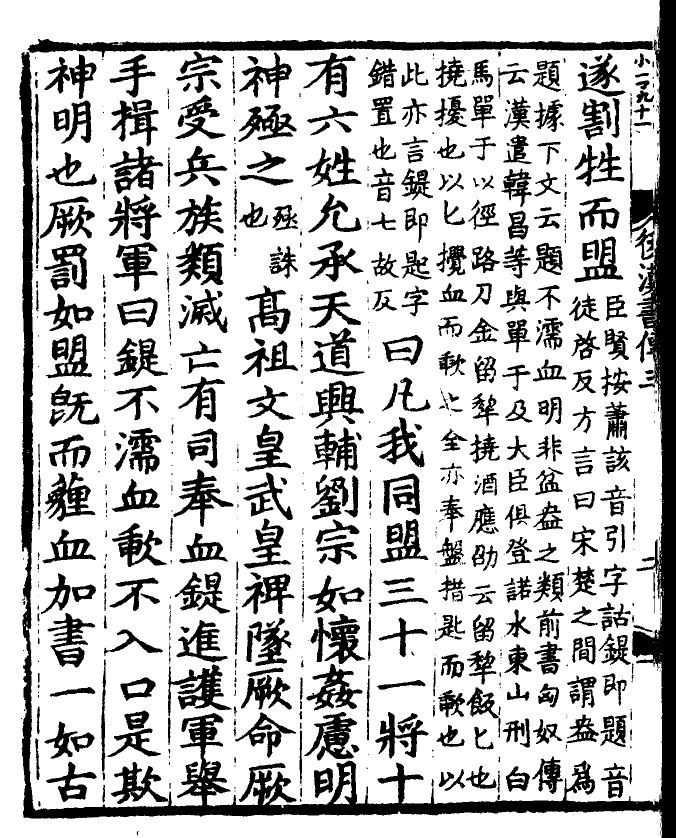 後漢書傳三
遂割牲而盟
臣賢按蕭該音引字詁鍉即題音
徒啓反方言曰宋楚之間謂盎為
題據下文云題不濡血明非盆盎之類前書匈奴傳
云漢遣韓昌等與單于及大臣俱登諾水東山刑白
馬單于以徑路刀金留犂撓酒應劭云留犂飯匕也
撓擾也以匕攪血而歃之全亦奉盤措匙而歃也以
此亦言鍉即匙字
錯置也音七故反
曰凡我同盟三十一將十
有六姓允承天道興輔劉宗如懷姦慮明
神殛之
殛誅
也
高祖文皇武皇裨墜厥命厥
宗受兵族類滅亡有司奉血鍉進護軍舉
手揖諸將軍曰鍉不濡血歃不入口是欺
神明也厥罰如盟旣而薶血加書一如古